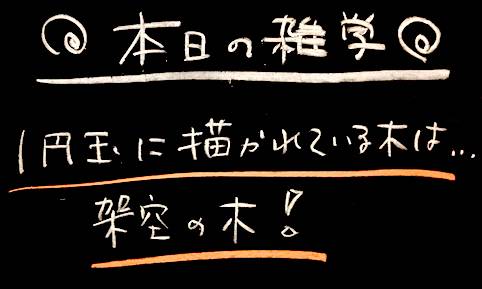 本日の雑学
1円玉に描かれている木は...
架空の木!